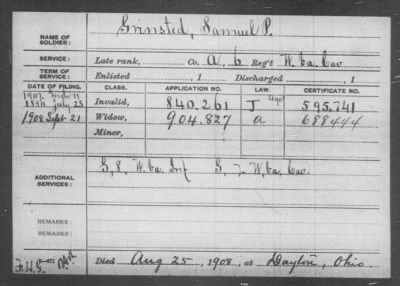 NAME OF SOLDIER: Grinsted, Samuel P.
SERVICE: Late rank, Co. A, 6 Reg't W. Va. Cav
TERM OF SERVICE: Enlisted , 1 Discharged , 1
DATE OF FILING. CLASS. APPLICATION NO. LAW. CERTIFICATE NO.
1907
1890 July 25 Invalid, 840.261 J 595.741
1908 Sept 21 Widow, 904.827 a 688444
Minor,
ADDITIONAL SERVICES: G, 8, W. Va. Inf G, 7, W. Va. Cav.
REMARKS:
REMARKS:
Died Aug 25, 1908, at Dayton, Ohio